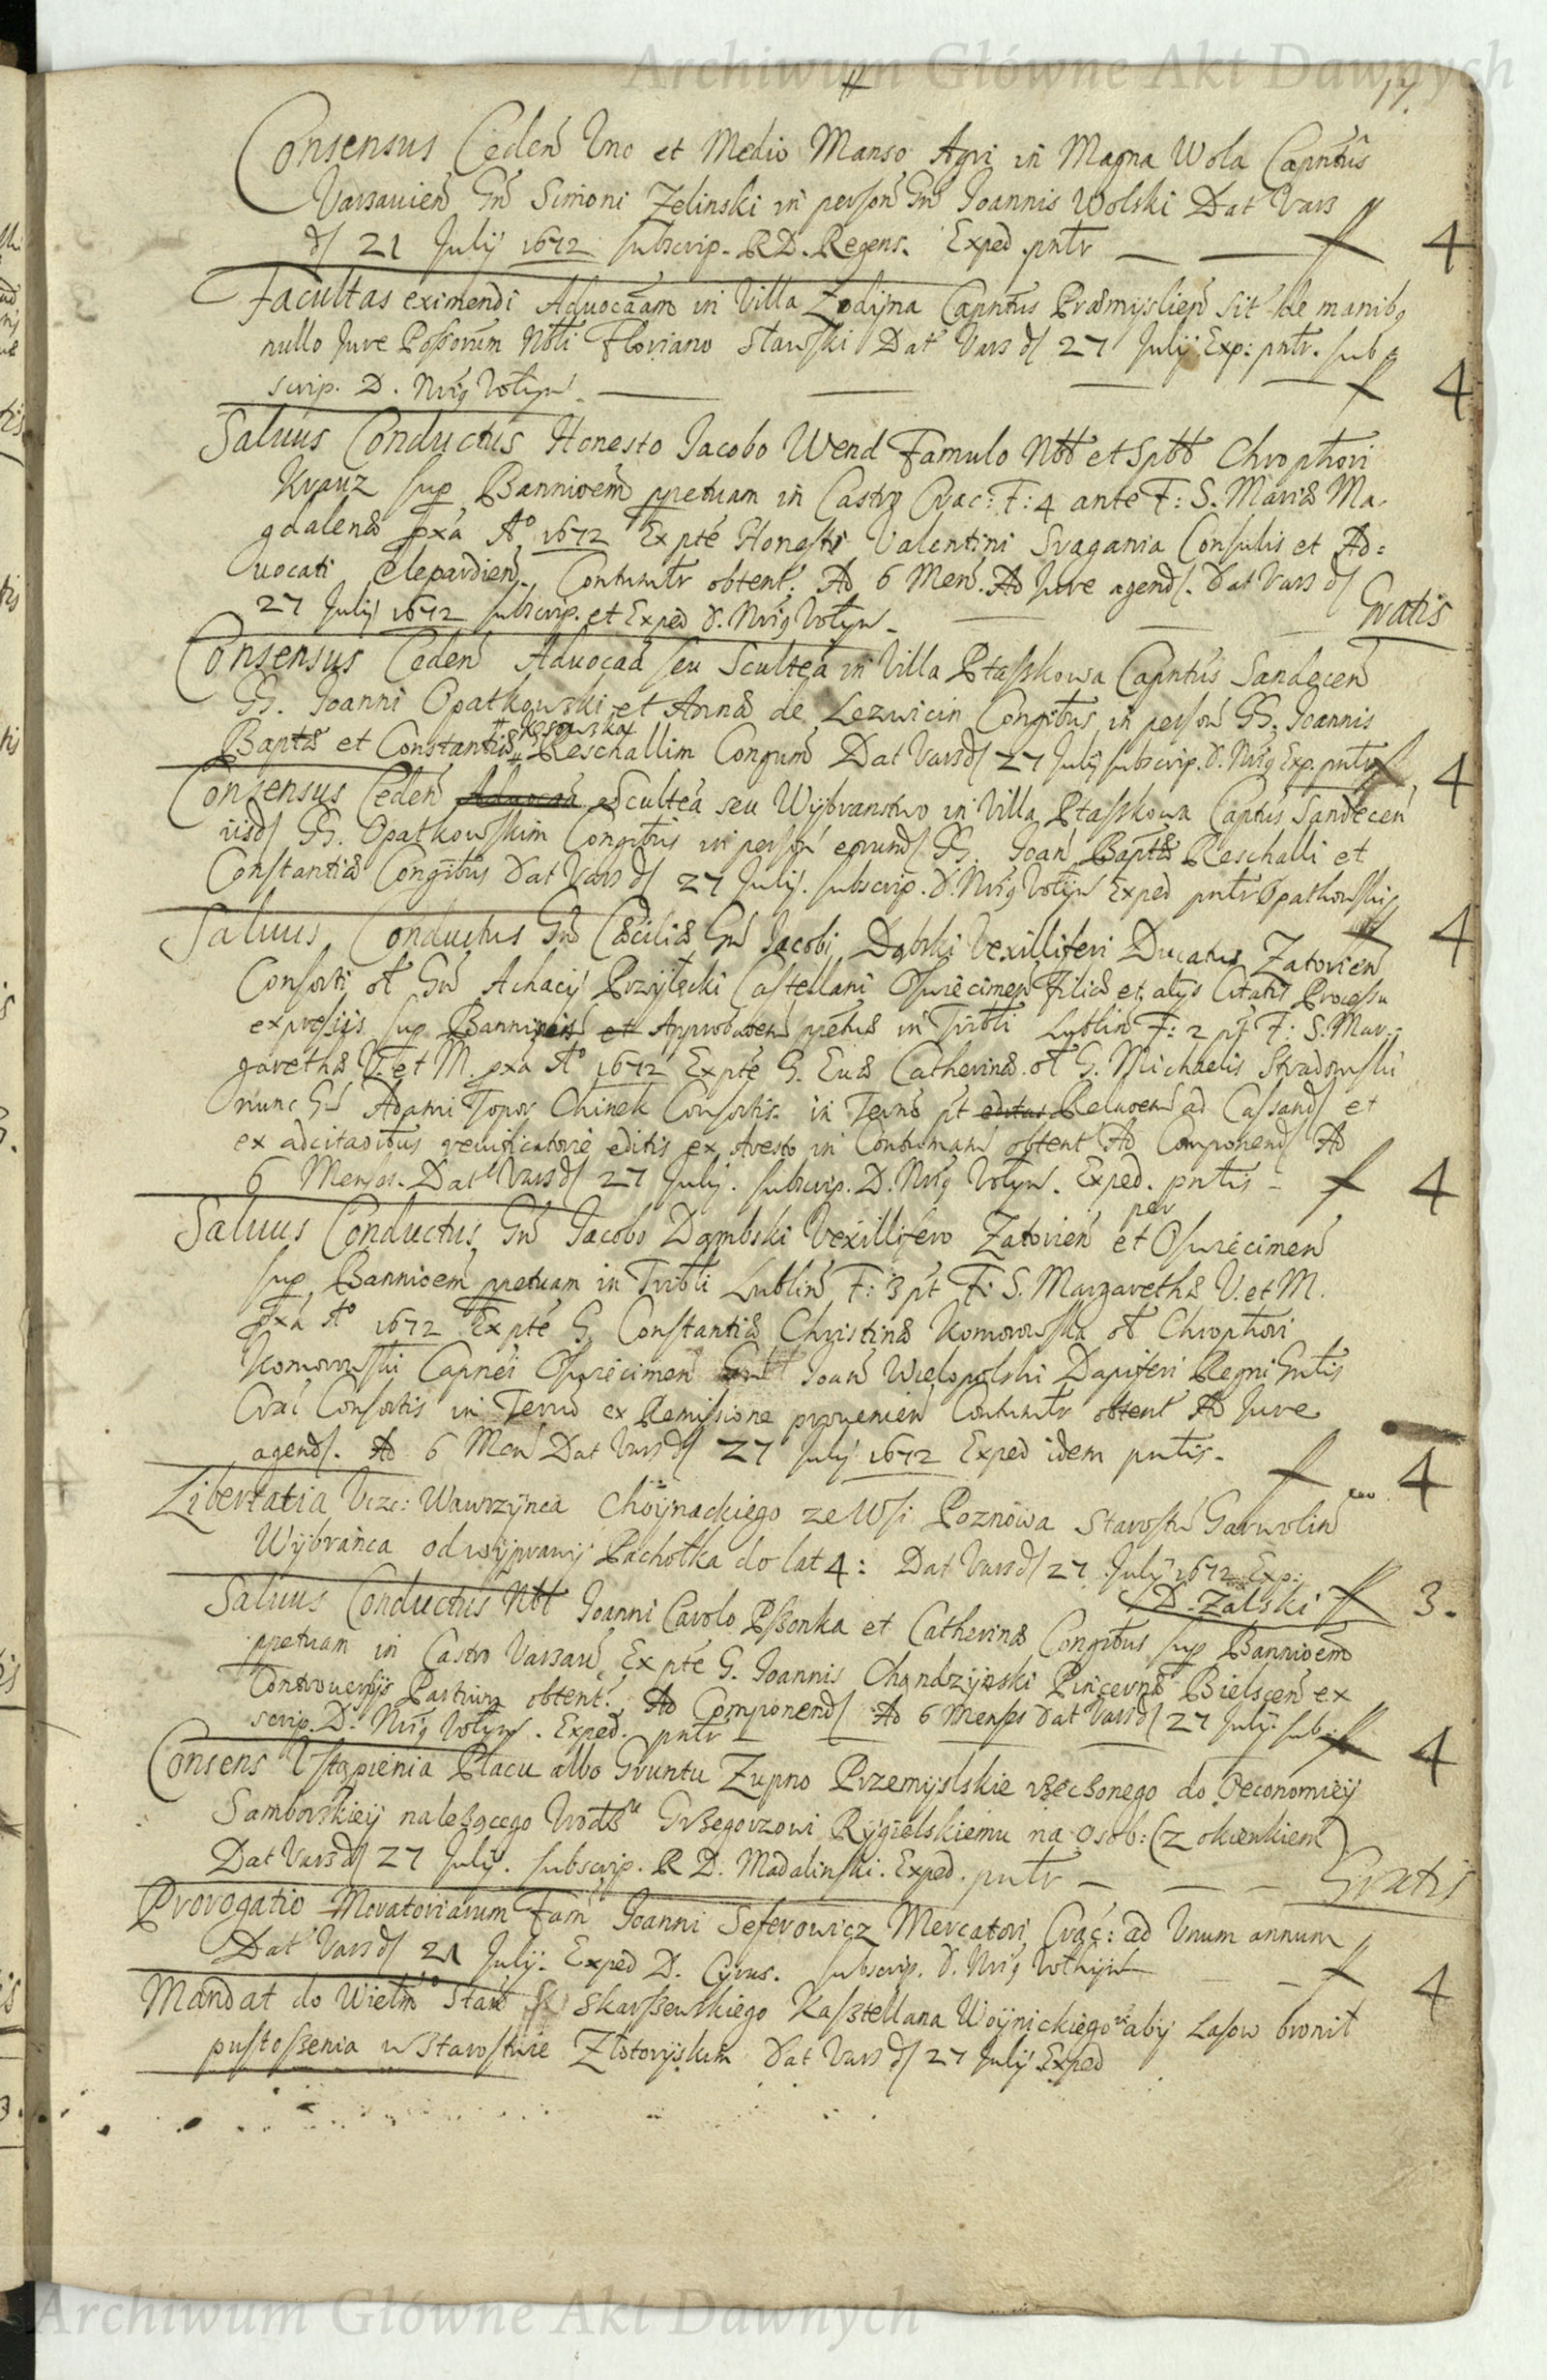 Archiwum Główne Akt Dawnych
17.
Consensus Ceden Uno et Medio Manso Agri in Magna Wola Capntus
Varsavien Gn Simoni Zelinski in person Gn Joannis Wolski Dat Vars
d 21 Julij 1672 subscrip. R D. Regens. Exped. pntr f 4
Facultas eximendi Advocaam in Villa Zodijna Capntus Præmyslien sit de manibq
nullo Jure Possorum Nbli Floriano Stawski Dat Vars d 27 Julij Exp: pntr. sub
scrip. D. Nrig Votyn. f 4
Salvus Conductus Honesto Jacobo Wend Famulo Nbt et Spbt Chrophori
Krauz sup Bannioem ppetuam in Castro Crac: F: 4 ante F: S. Mariæ Ma-
gdalenæ pxa A° 1672 Ex pte Honesti Valentini Svagania Consulis et Ad=
vocati Clepardien. Contumtr obtent. Ad 6 Men. Ad Jure agend. Dat Vars d
27 Julij 1672 subscrip. et Exped D. Nrig Votyn. Gratis
Consensus Ceden Advocaa seu Scultea in Villa Ptaszkowa Capntus Sandecen
GG. Joanni Opatkowski et Annæ de Lezwicin Congibus in person GG. Joannis
Kosowska
Baptæ et Constantiæ Reschallim Congum Dat Vars d 27 Julij subscrip. D. Nrig Exp. pntr f 4
Consensus Ceden Advocaa Scultea seu Wybranstwo in Villa Ptaszkowa Captus Sandecen
iisd GG. Opatkowskim Congibus in person eorund GG. Joan Baptæ Reschalli et
Constantiæ Congibus Dat Vars d 27 Julij. subscrip. D. Nrig Votyn Exped pntr Opatkowski
f 4
Salvus Conductus Gn Cæciliæ Gn Jacobi Dąbski Vexilliferi Ducatus Zatorien
Consorti ol Gn Achacij Przyłęcki Castellani Oswiecimen Filiæ et alijs Citatis Processu
expressis sup Bannioeis et Approbaoem ppetuæ in Tribli Lublin F: 2 pt F: S. Mar-
garethæ V. et M. pxa A° 1672 Ex pte G. Euæ Catherinæ ol G. Michaelis Stradomski
nunc Gn Adami Topor Chinek Consortis. in Termo pt editas Relaoem ad Cassand et
ex adcitaoibus reuificatorie editis ex Aresto in Contumam obtent Ad Componend Ad
6 Menses. Dat Vars d 27 Julij. subscrip. D. Nrig Votyn. Exped. pntis f 4
per
Salvus Conductus Gn Jacobo Dąmbski Vexillifero Zatorien et Oswiecimen
sup Bannioem ppetuam in Tribli Lublin F: 3 pt F: S. Margarethæ V. et M.
pxa A° 1672 Ex pte G. Constantiæ Christinæ Komorowska ol Chrophori
Komorowski Capnei Oswiecimen Joan Wielopolski Dapiferi Regni Gntis
Crac Consortis in Termo ex Remissione provenien Contumtr obtent Ad Jure
agend. Ad 6 Men Dat Vars d 27 July 1672 Exped idem pntis. f 4
Libertatia Vczc: Wawrzynca Choynackiego ze Wsi Poznowa Starostw Garwolin
Wybranca od wyprawy Pachołka do lat 4: Dat Vars d 27 July 1672 Exp:
D. Zalski f 3.
Salvus Conductus Nbt Joanni Carolo Pszonka et Catherinæ Congibus sup Bannioem
ppetuam in Castro Varsav Ex pte G. Joannis Chądzyński Pincernæ Bielscen ex
Controuersijs Partium obtent. Ad Componend Ad 6 Menses Dat Vars d 27 Julij. sub-
scrip. D. Nrig Votyn. Exped. pntr f 4
Consens Ustąpienia Placu albo Gruntu Zupno Przemyslskie rzeczonego do Oeconomiey
Samborskiey należącego Urodz Grzegorzowi Rygielskiemu na Osob: (z okienkiem)
Dat Vars d 27 Julij. subscrip. R D. Madalinski. Exped. pntr Gratis
Prorogatio Moratoriarum Fam Joanni Seferowicz Mercatori Crac: ad Unum annum
Dat Vars d 21 Julij. Exped D. Cyrus. subscrip. D. Nrig Vothyn f 4
Mandat do Wielm Star Skarszewskiego Kasztellana Woynickiego aby Lasow bronił
pustoszenia w Starostwie Złotoryskim Dat Vars d 27 Julij Exped
Archiwum Główne Akt Dawnych